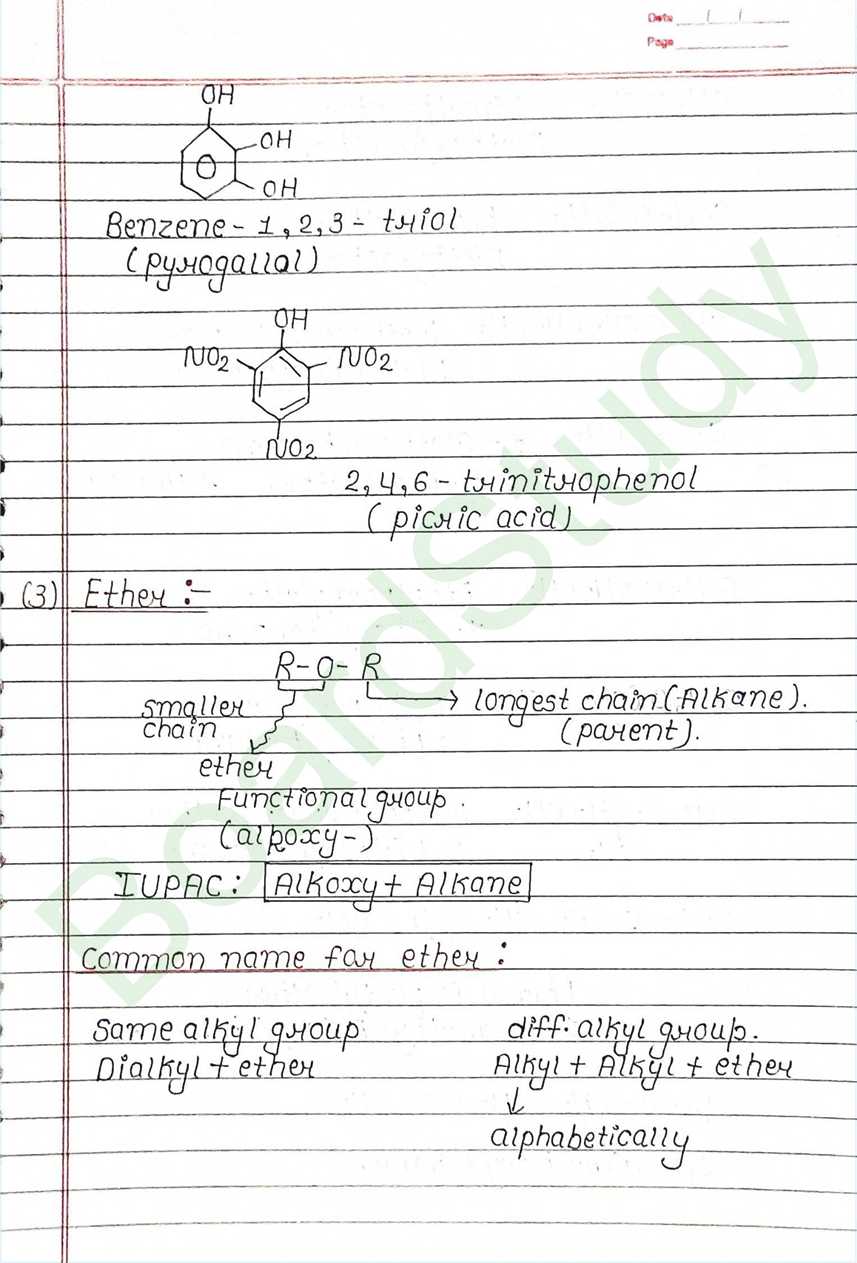 Date
Page
OH
OH
OH
Benzene - 1, 2, 3 - triol
(pyrogallol)
OH
NO2 NO2
NO2
2, 4, 6 - trinitrophenol
(picric acid)
(3) Ether :-
R - O - R
smaller longest chain (Alkane).
chain (parent).
ether
Functional group.
(alkoxy-)
IUPAC : Alkoxy + Alkane
Common name for ether :
Same alkyl group diff. alkyl group.
Dialkyl + ether Alkyl + Alkyl + ether
alphabetically
BoardStudy